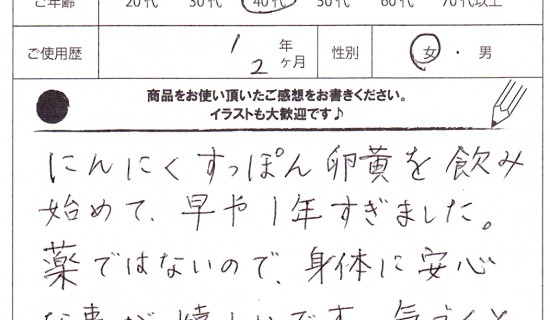 ご年齢 20代 30代 40代 50代 60代 70代以上
ご使用歴 1年2ヶ月 性別 女・男
商品をお使い頂いたご感想をお書きください。
イラストも大歓迎です♪
にんにくすっぽん卵黄を飲み
始めて、早や1年すぎました。
薬ではないので、身体に安心
な事が嬉しいです。気づくと